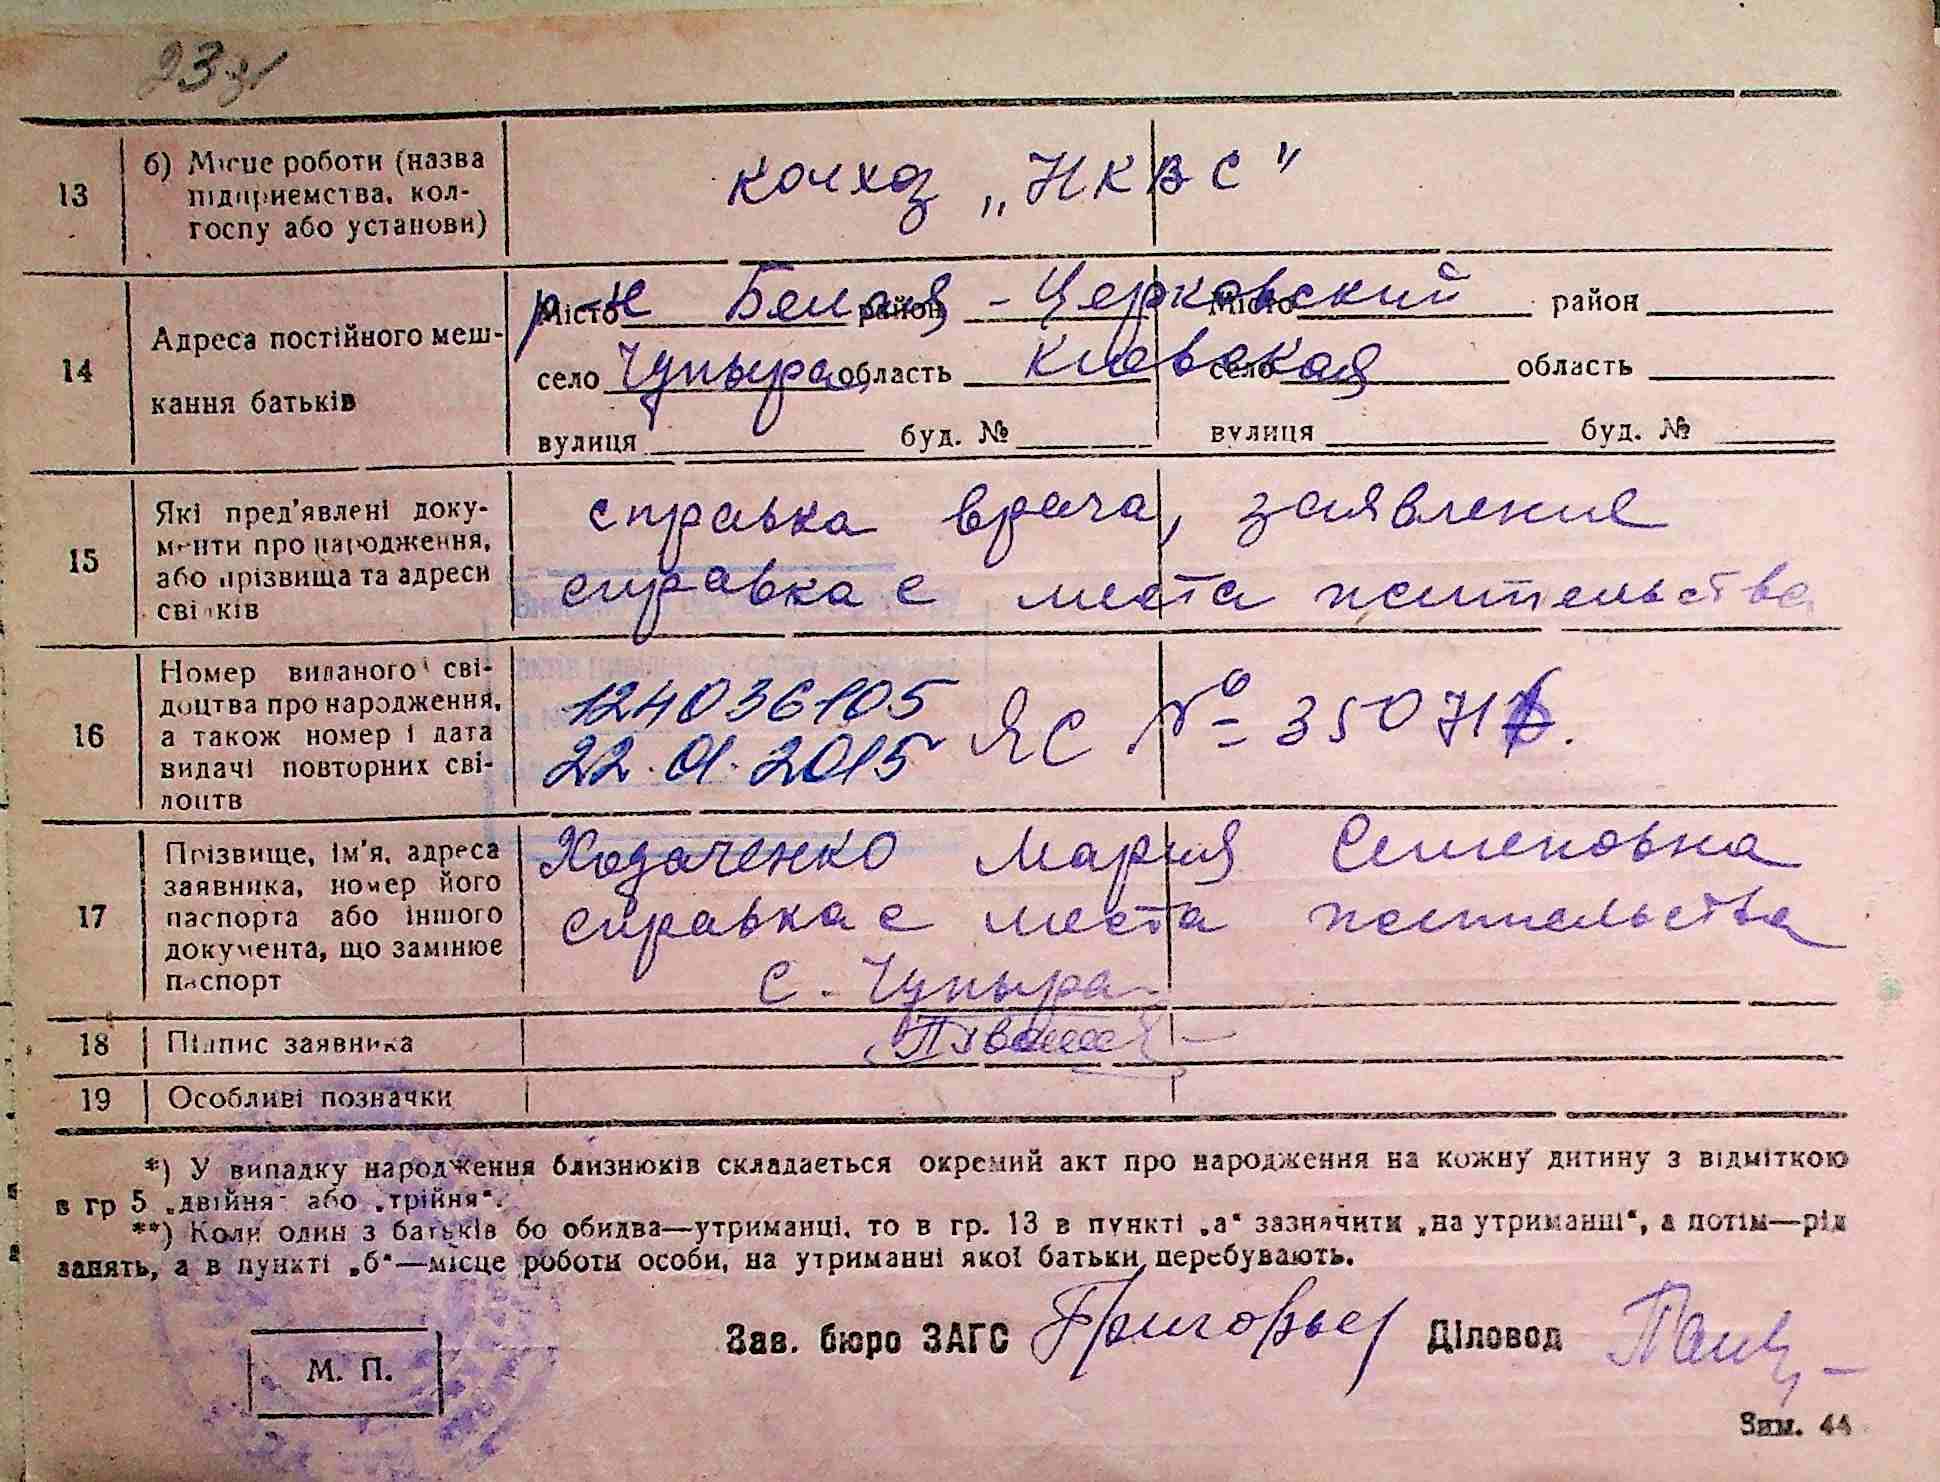 23
13
б) Місце роботи (назва
підприемства, кол-
госпу або установи)
колхоз „НКВС"
14
Адреса постійного меш-
кання батьків
місто район місто район
р-н Белая-Церковский
село Чупыра область Киевская село область
вулиця буд. № вулиця буд. №
15
Які пред'явлені доку-
менти про народження,
або прізвища та адреси
свідків
справка врача, заявление
справка с места жительства
16
Номер виданого сві-
доцтва про народження,
а також номер і дата
видачі повторних сві-
доцтв
124036105
22.01.2015
ЯС № 35071
17
Прізвище, ім'я, адреса
заявника, номер його
паспорта або іншого
документа, що замінює
паспорт
Ходаченко Мария Семеновна
справка с места жительства
с. Чупыра
18
Підпис заявника
19
Особливі позначки
*) У випадку народження близнюків складається окремий акт про народження на кожну дитину з відміткою
в гр 5 „двійня" або „трійня".
**) Коли один з батьків бо обидва—утриманці, то в гр. 13 в пункті „а" зазначити „на утриманні", а потім—рід
занять, а в пункті „б"—місце роботи особи, на утриманні якої батьки перебувають.
М. П.
Зав. бюро ЗАГС Григорьев Діловод
Зим. 44